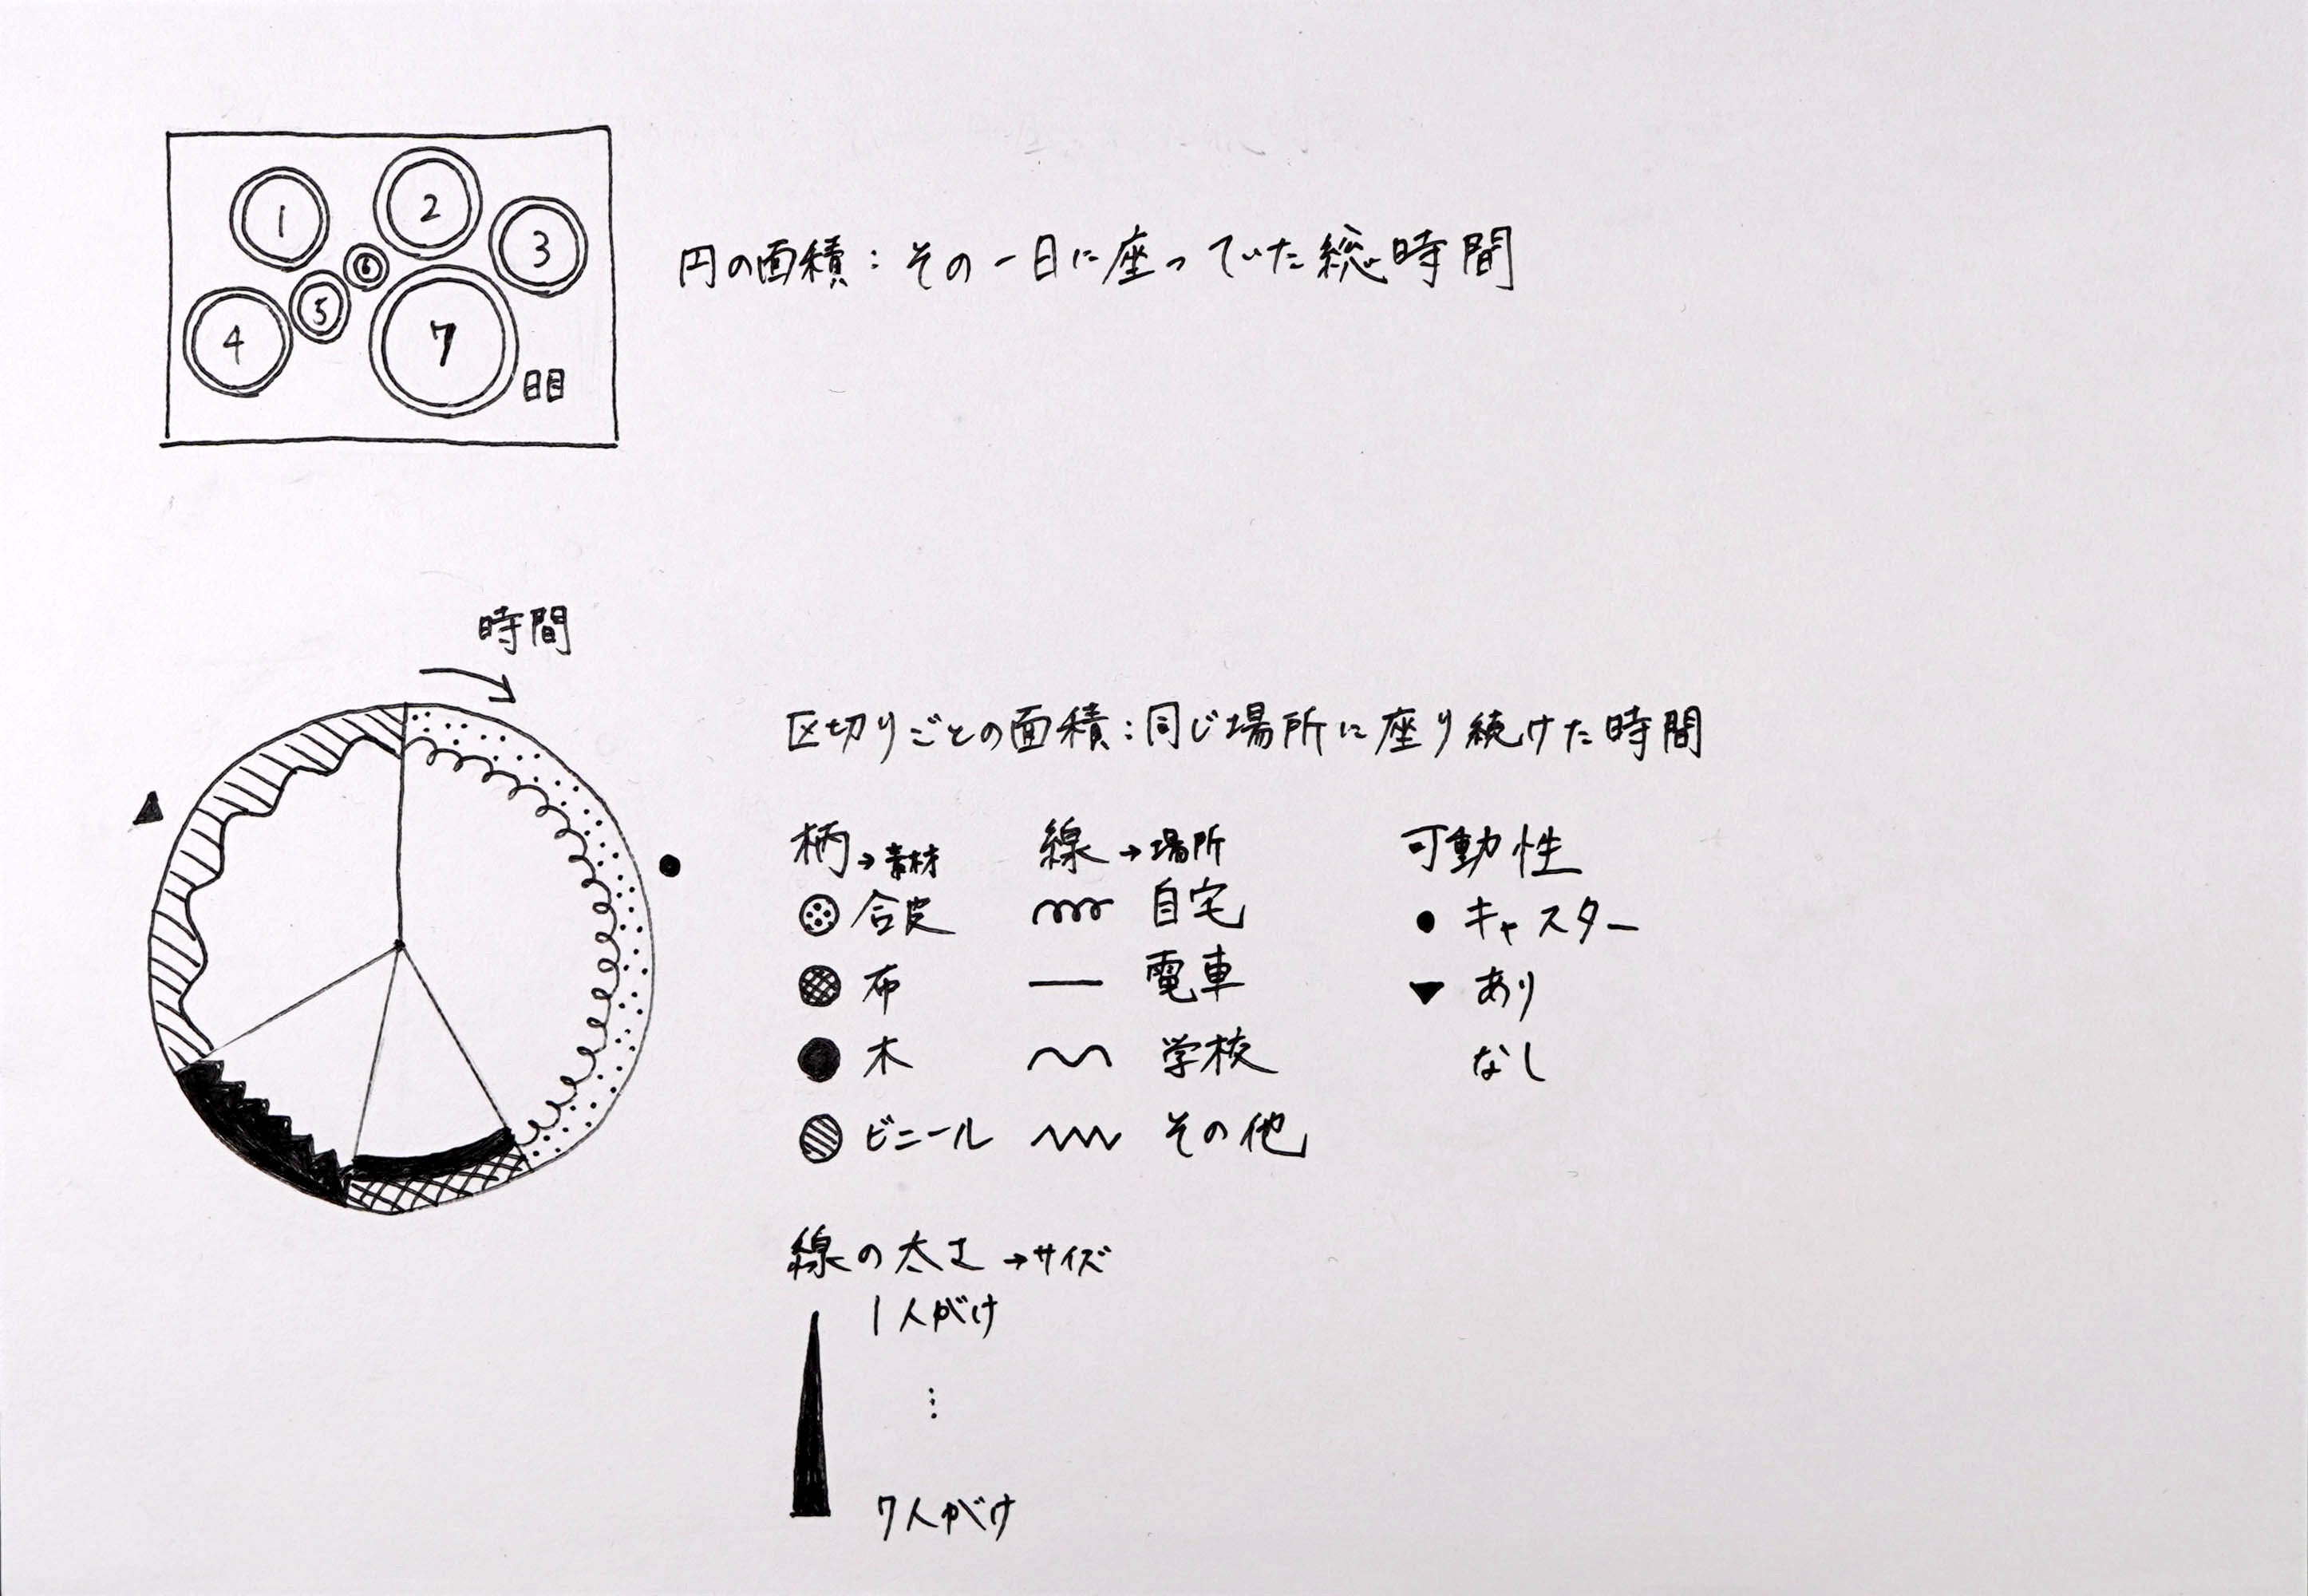 1
2
3
4
5
6
7
日目
円の面積：その一日に座っていた総時間
時間
区切りごとの面積：同じ場所に座り続けた時間
柄→素材
合皮
布
木
ビニール
線→場所
自宅
電車
学校
その他
可動性
キャスター
あり
なし
線の太さ→サイズ
1人がけ
⋮
7人がけ